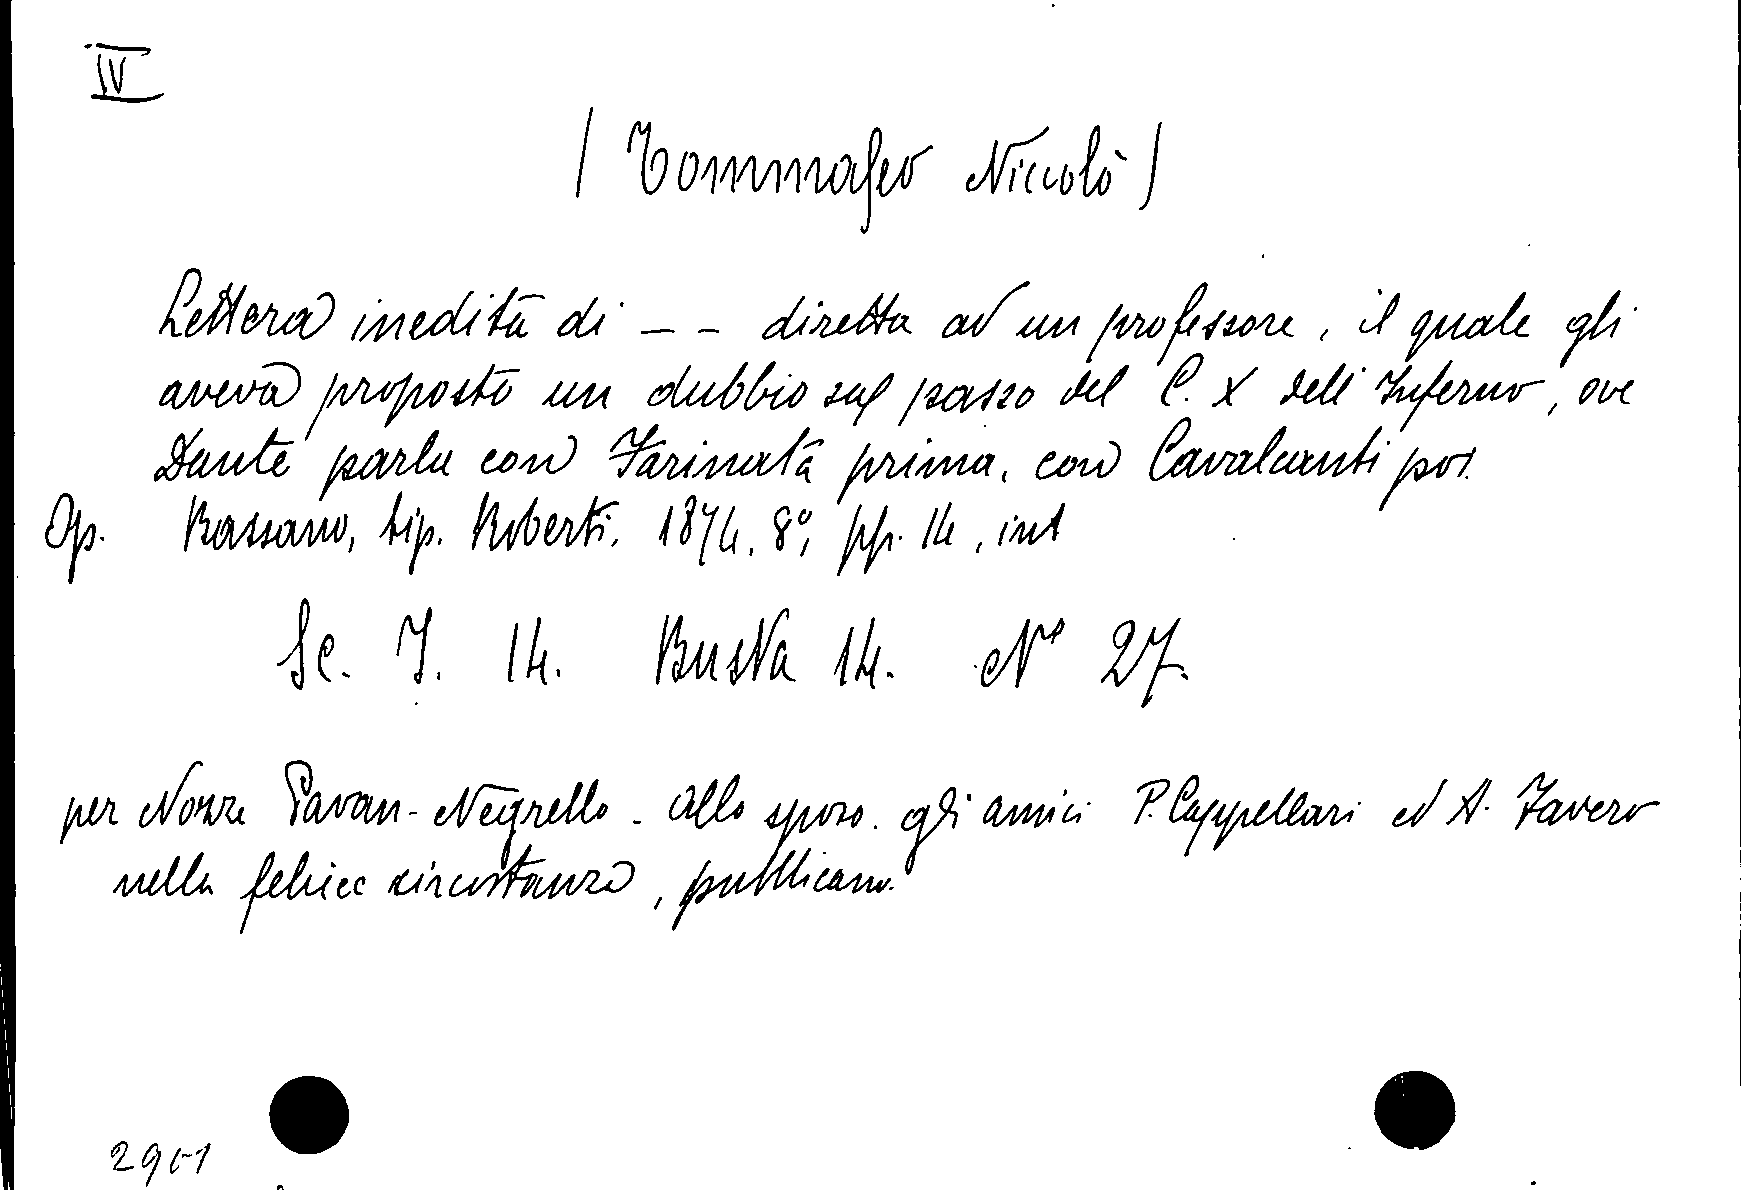 IV
(Tommaseo Niccolò)
Lettera inedita di -- diretta ad un professore, il quale gli
aveva proposto un dubbio sul passo del C. X dell'Inferno, ove
Dante parla con Farinata prima, con Cavalcanti poi.
Op. Bassano, tip. Roberti, 1874, 8°, pp. 14, int
Sc. I. 14. Busta 14. N° 27.
per Nozze Pavan-Negrello - allo sposo. gli amici P. Cappellari ed A. Favero
nella felice circostanza, pubblicano.